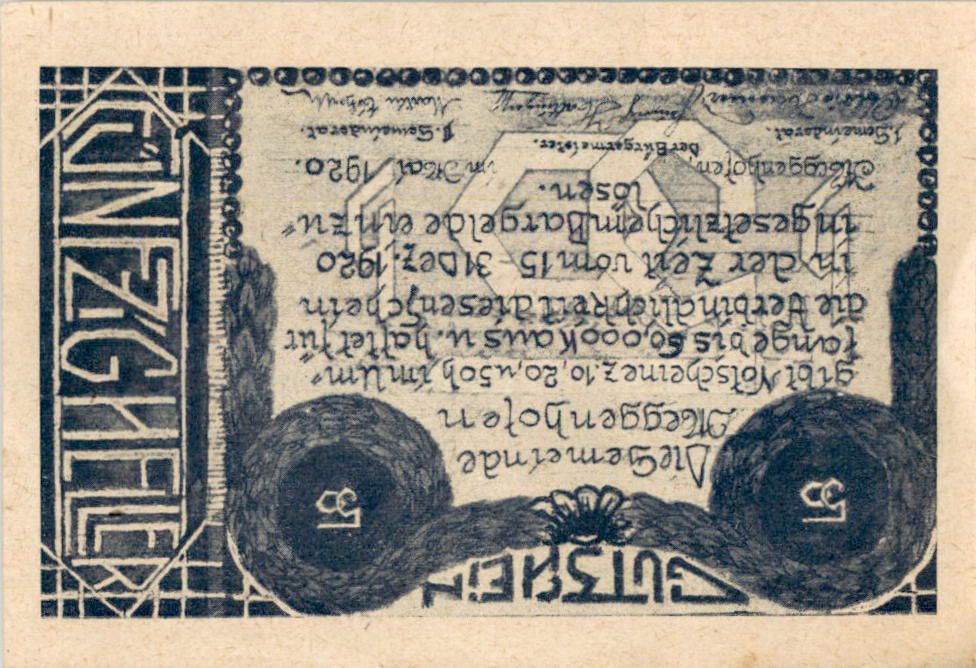 GUTSCHEIN
50 50
Die Gemeinde
Meggenhofen
gibt Notscheine z. 10, 20, u 50 h im Um„
fange bis 60.000 K aus u. haftet für
die Verbindlichkeit diesen Schein
in der Zeit vom 15 - 31 Dez. 1920
in gesetzlichem Bargelde einzu„
lösen.
Meggenhofen, im Mai 1920.
I. Gemeinderat. Der Bürgermeister. II. Gemeinderat.
FÜNFZGHELLER